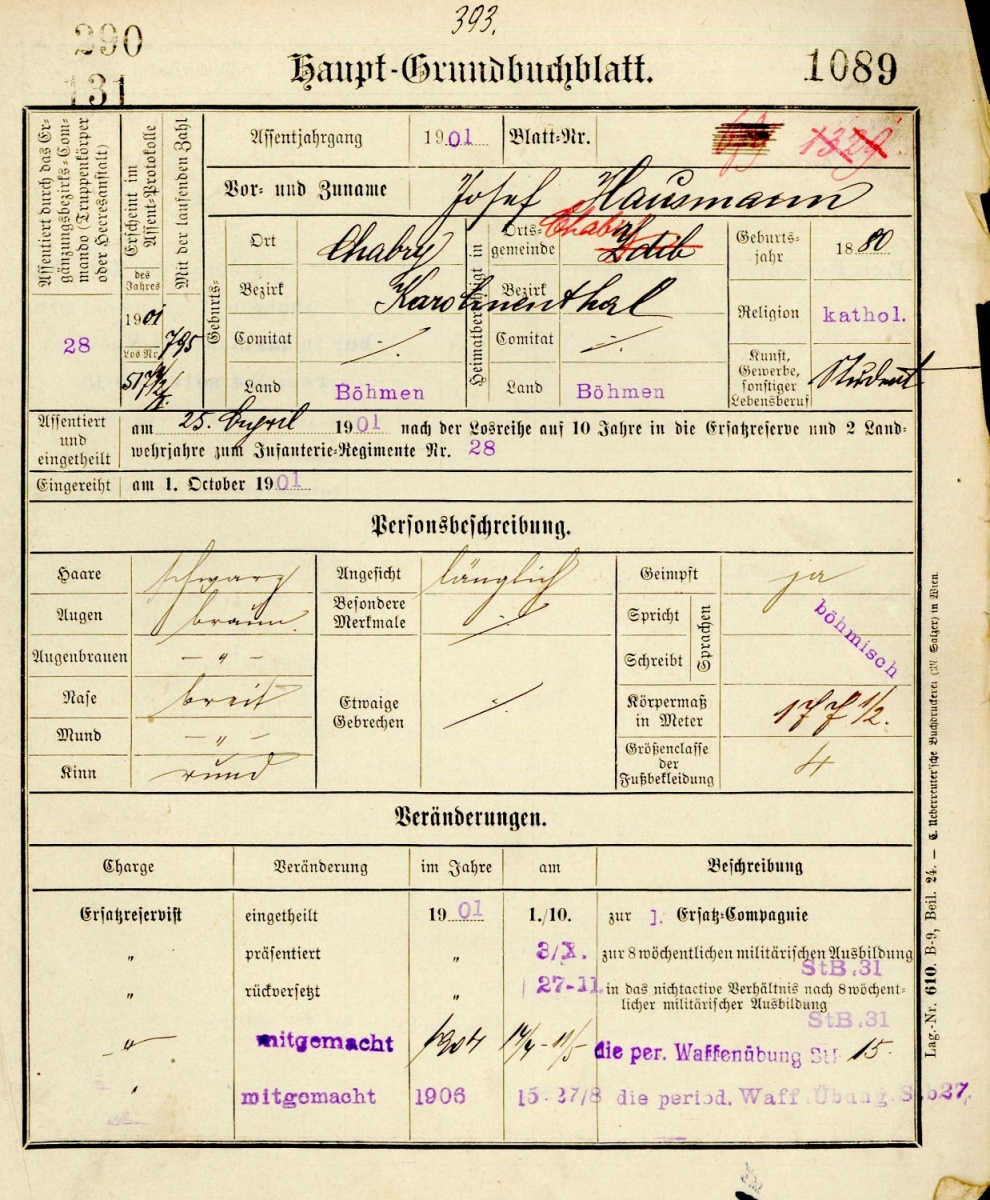 393.
290
131
Haupt-Grundbuchblatt.
1089
Assentiert durch das Er-
gänzungsbezirks-Com-
mando (Truppenkörper
oder Heeresanstalt)
28
Erscheint im
Assent-Protokolle
des
Jahres
1901
Los Nr.
Mit der laufenden Zahl
795
Assentjahrgang 1901 Blatt-Nr. 1329
Vor- und Zuname Josef Hausmann
Geburts-
Ort Chabry
Bezirk Karolinenthal
Comitat ./.
Land Böhmen
Heimatberechtigt in
Orts-
gemeinde Chabry Zdib
Bezirk
Comitat ./.
Land Böhmen
Geburts-
jahr 1880
Religion kathol.
Kunst,
Gewerbe,
sonstiger
Lebensberuf Student
Assentiert
und
eingetheilt
am 25. April 1901 nach der Losreihe auf 10 Jahre in die Ersatzreserve und 2 Land-
wehrjahre zum Infanterie-Regimente Nr. 28
Eingereiht am 1. October 1901
Personsbeschreibung.
Haare schwarz
Augen braun
Augenbrauen — „ —
Nase breit
Mund — „ —
Kinn rund
Angesicht länglich
Besondere
Merkmale ./.
Etwaige
Gebrechen ./.
Geimpft ja
Spricht
Schreibt
Sprachen
böhmisch
Körpermaß
in Meter 177 1/2.
Größenclasse
der
Fußbekleidung 4
Veränderungen.
Charge Veränderung im Jahre am Beschreibung
Ersatzreservist eingetheilt 1901 1./10. zur 1. Ersatz-Compagnie
„ präsentiert „ 3/X. zur 8 wöchentlichen militärischen Ausbildung
StB.31
„ rückversetzt „ 27-11. in das nichtactive Verhältnis nach 8 wöchent-
licher militärischer Ausbildung
StB.31
„ mitgemacht 1904 14/4 - 11/5 die per. Waffenübung StB 15.
„ mitgemacht 1906 15-27/8 die period. Waff.Übung Stb27.
Lag.-Nr. 610. B-9, Beil. 24. — C. Ueberreuter'sche Buchdruckerei (M. Salzer) in Wien.